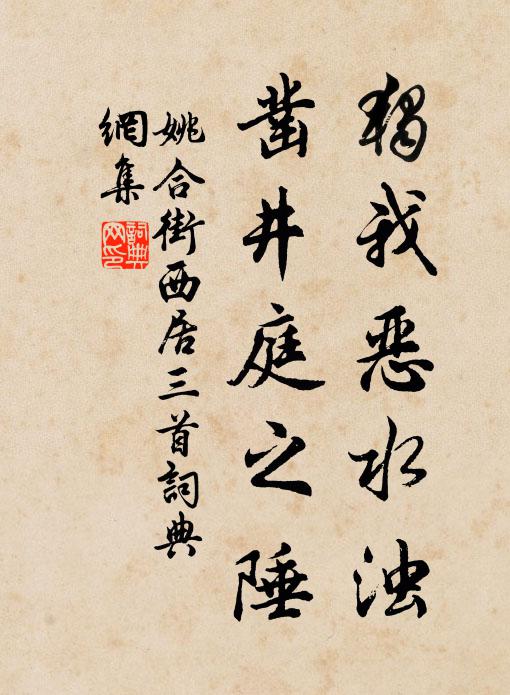 獨我恶水浊
凿井庭之陲
姚合街西居三首詞典
網集
詞典
网印